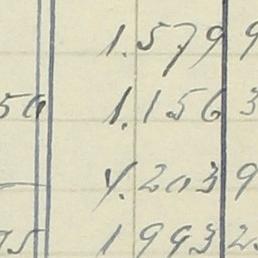 1.579 9
50 1.156 3
4.203 9
75 1993 2